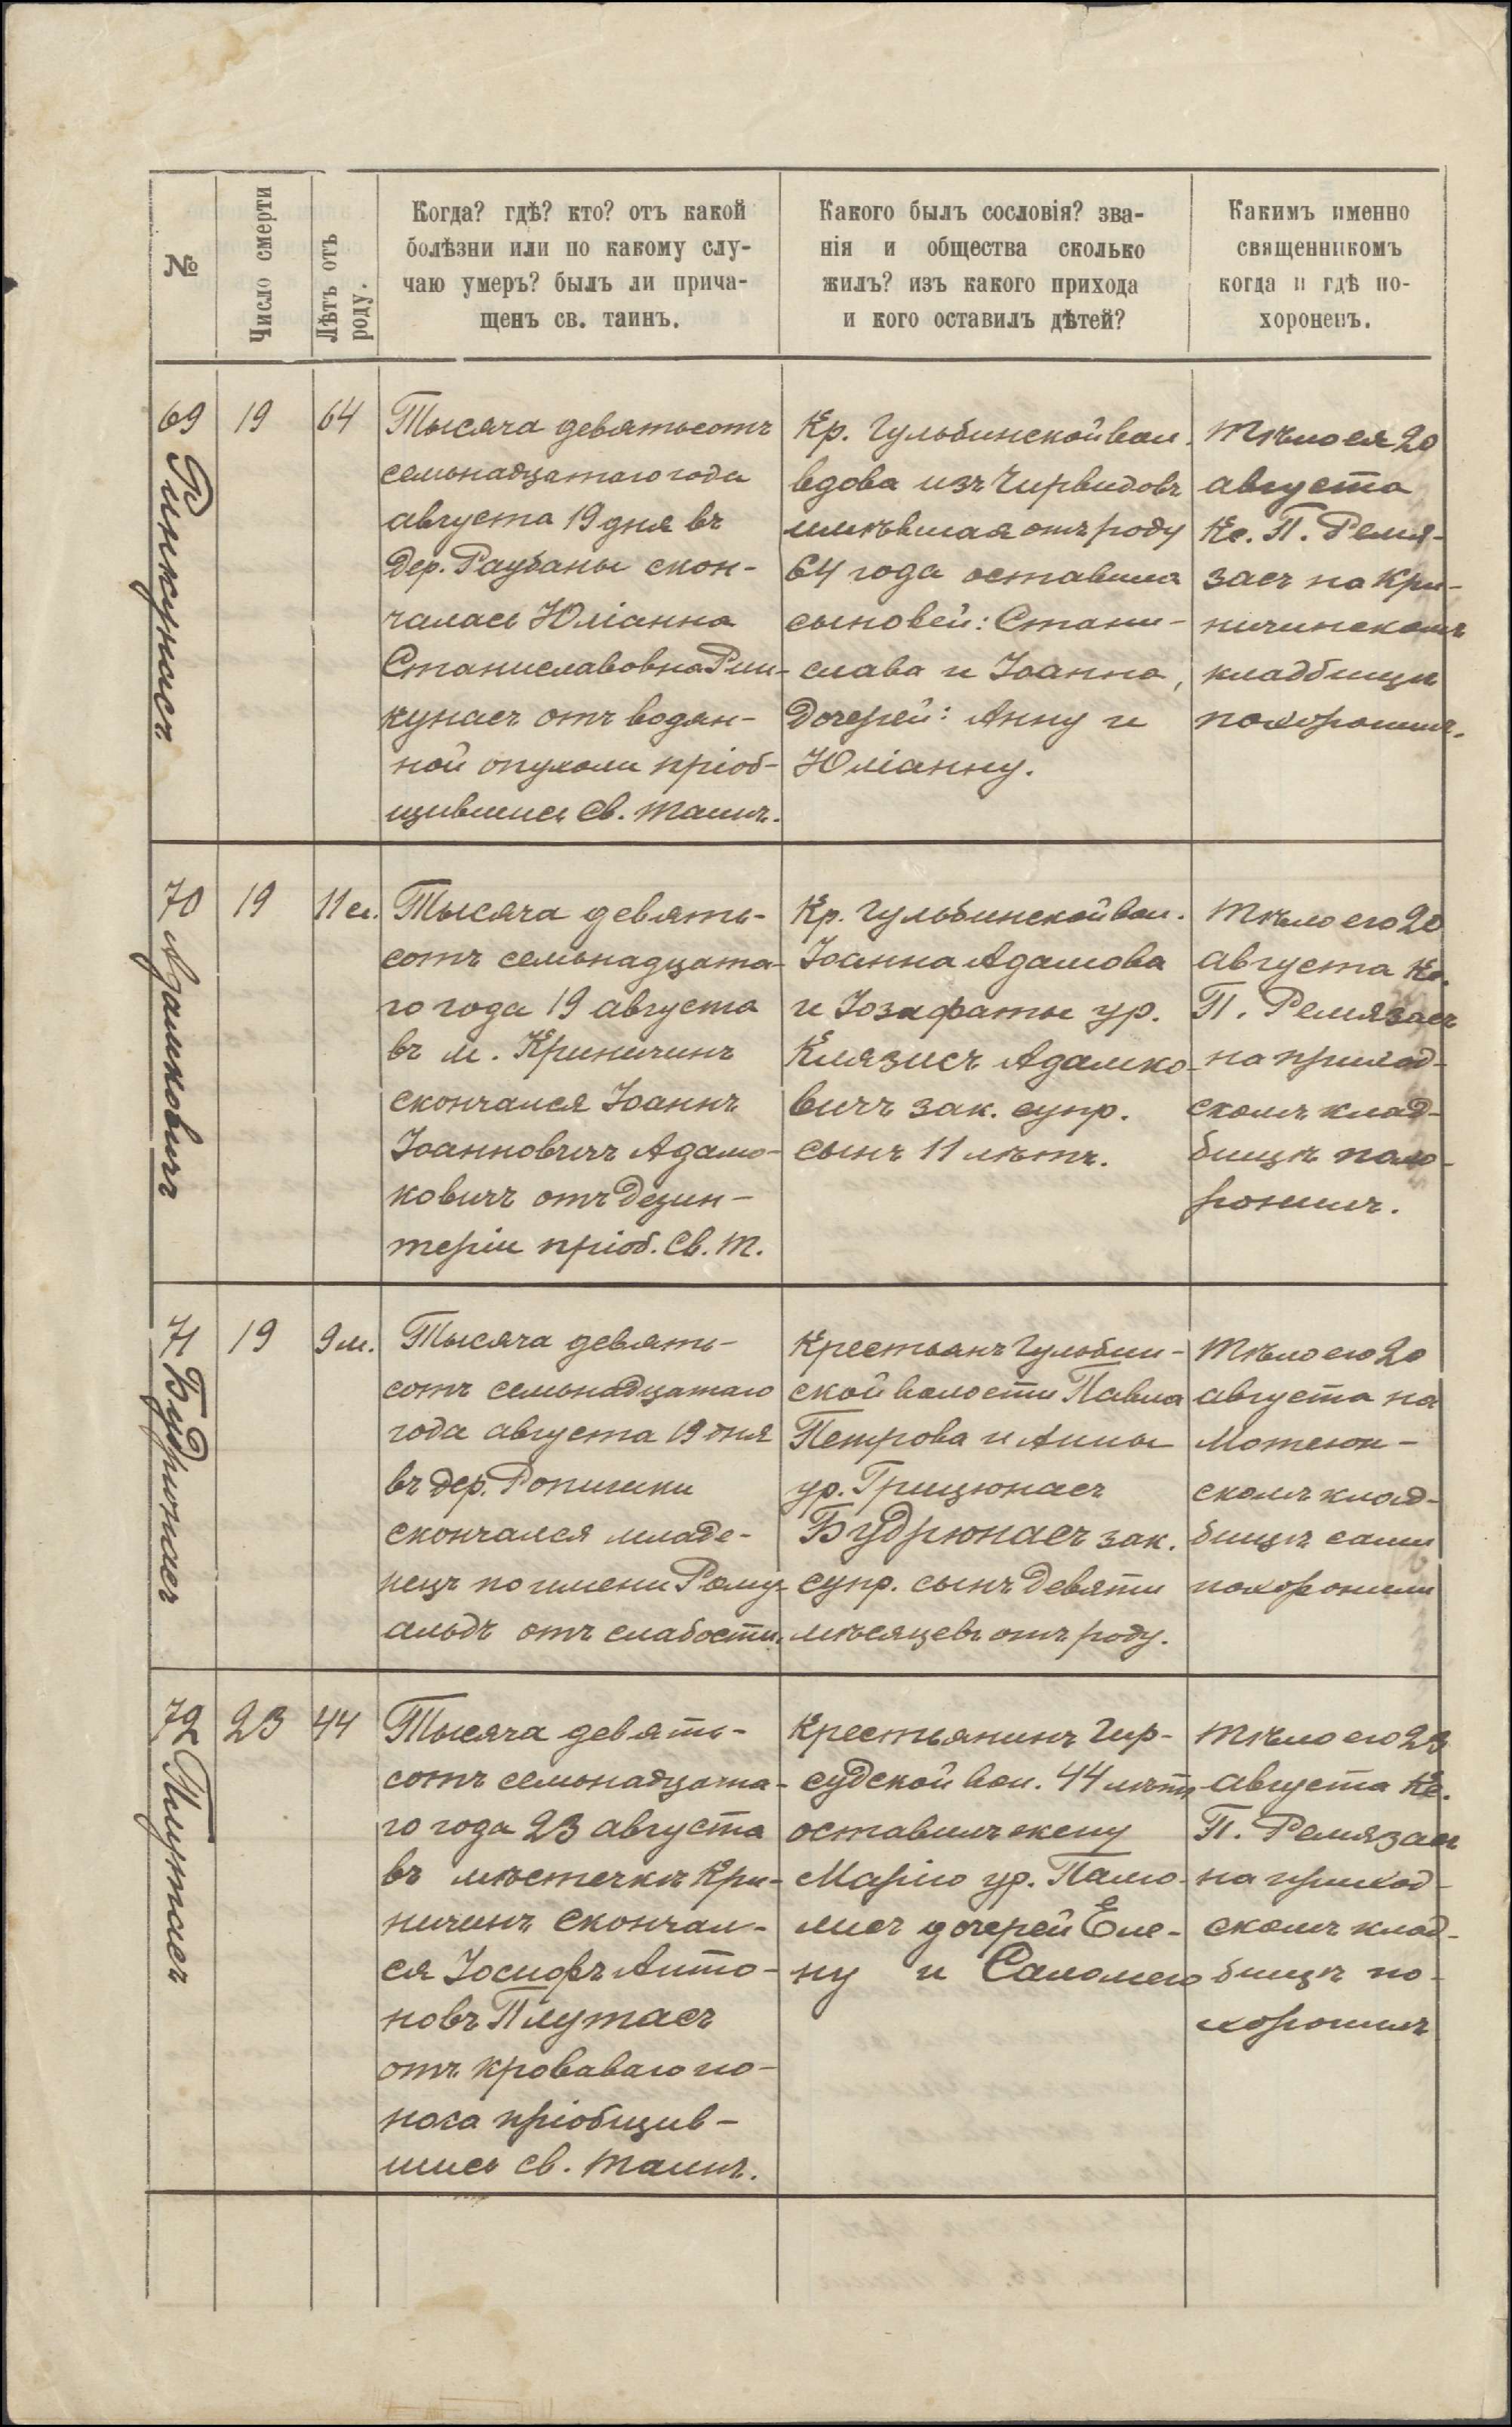 №
Число смерти
Лѣтъ отъ
роду.
Когда? гдѣ? кто? отъ какой
болѣзни или по какому слу-
чаю умеръ? былъ ли прича-
щенъ св. таинъ.
Какого былъ сословія? зва-
нія и общества сколько
жилъ? изъ какого прихода
и кого оставилъ дѣтей?
Какимъ именно
священникомъ
когда и гдѣ по-
хороненъ.
69 Ринкунасъ
19
64
Тысяча девятьсотъ
семьнадцатаго года
августа 19 дня въ
дер. Раубаны скон-
чалась Юліанна
Станиславовна Рин-
кунасъ отъ водян-
ной опухоли пріоб-
щившись Св. Таинъ.
Кр. Гульбинской вол.
вдова изъ Чирвидовъ
имѣвшая отъ роду
64 года оставила
сыновей: Стани-
слава и Іоанна,
дочерей: Анну и
Юліанну.
Тѣло ея 20
августа
Кс. П. Ремя-
засъ на Кри-
ничинскомъ
кладбищѣ
похоронилъ.
70 Адамковичъ
19
11 л.
Тысяча девять-
сотъ семьнадцата-
го года 19 августа
въ м. Криничинъ
скончался Іоаннъ
Іоанновичъ Адам-
ковичъ отъ дезин-
теріи пріоб. Св. Т.
Кр. Гульбинской вол.
Іоанна Адамова
и Іозафаты ур.
Клязисъ Адамко-
вичъ зак. супр.
сынъ 11 лѣтъ.
Тѣло его 20
августа Кс.
П. Ремязасъ
на приход-
скомъ клад-
бищѣ похо-
ронилъ.
71 Будрюнасъ
19
9 м.
Тысяча девять-
сотъ семьнадцатаго
года августа 19 дня
въ дер. Ропишки
скончался младе-
нецъ по имени Рому-
альдъ отъ слабости.
Крестьянъ Гульбин-
ской волости Павла
Петрова и Анны
ур. Грицюнасъ
Будрюнасъ зак.
супр. сынъ девяти
мѣсяцевъ отъ роду.
Тѣло его 20
августа на
Мотеюн-
скомъ клад-
бищѣ сами
похоронили
72 Плутасъ
23
44
Тысяча девять-
сотъ семьнадцата-
го года 23 августа
въ мѣстечкѣ Кри-
ничинъ скончал-
ся Іосифъ Анто-
новъ Плутасъ
отъ кроваваго по-
носа пріобщив-
шись Св. Таинъ.
Крестьянинъ Гир-
судской вол. 44 лѣтъ
оставилъ жену
Марію ур.
дочерей Еле-
ну и Саломею
Тѣло его 23
августа Кс.
П. Ремязасъ
на приход-
скомъ клад-
бищѣ по-
хоронилъ